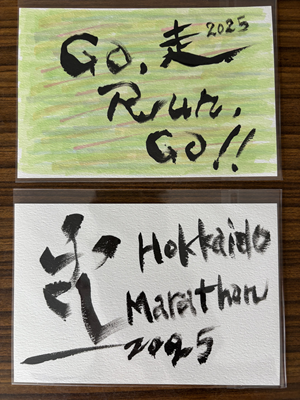 Go, 走 2025
Run,
Go!!
走 Hokkaido
Marathon
2025